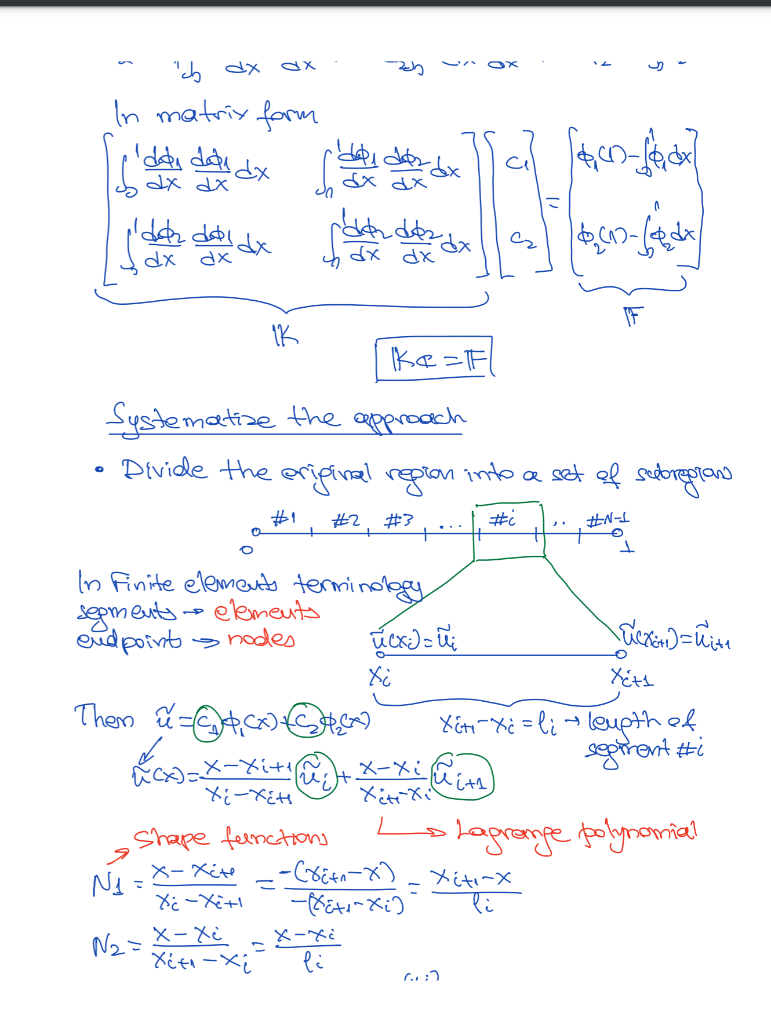 In matrix form
[ ∫₀¹ dϕ₁/dx dϕ₁/dx dx   ∫₀¹ dϕ₁/dx dϕ₂/dx dx ] [ c₁ ] = [ ϕ₁(1) - ∫₀¹ ϕ₁ dx ]
[ ∫₀¹ dϕ₂/dx dϕ₁/dx dx   ∫₀¹ dϕ₂/dx dϕ₂/dx dx ] [ c₂ ]   [ ϕ₂(1) - ∫₀¹ ϕ₂ dx ]
𝕂   𝔽
𝕂ℂ = 𝔽
Systematize the approach
• Divide the original region into a set of subregions
#1 #2 #3 ... #i .. #N-1
0 1
In Finite elements terminology
segments → elements
endpoints → nodes
ũ(xᵢ) = ũᵢ   ũ(xᵢ₊₁) = ũᵢ₊₁
xᵢ   xᵢ₊₁
Then ũ = c₁ϕ₁(x) + c₂ϕ₂(x)   xᵢ₊₁ - xᵢ = lᵢ → length of
segment #i
ũ(x) = (x - xᵢ₊₁)/(xᵢ - xᵢ₊₁) ũᵢ + (x - xᵢ)/(xᵢ₊₁ - xᵢ) ũᵢ₊₁
Shape functions   → Lagrange polynomial
N₁ = (x - xᵢ₊₁)/(xᵢ - xᵢ₊₁) = -(xᵢ₊₁ - x)/-(xᵢ₊₁ - xᵢ) = (xᵢ₊₁ - x)/lᵢ
N₂ = (x - xᵢ)/(xᵢ₊₁ - xᵢ) = (x - xᵢ)/lᵢ